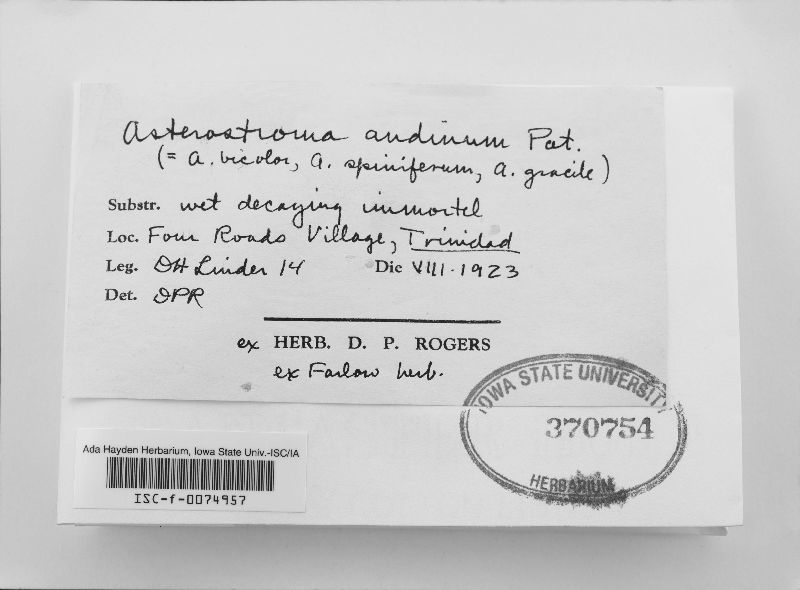 Asterostroma andinum Pat.
(= A. bicolor, A. spiniferum, A. gracile)
Substr. wet decaying immortel
Loc. Four Roads Village, Trinidad
Leg. DH Linder 14 Die VIII-1923
Det. DPR
ex HERB. D. P. ROGERS
ex Farlow herb.
IOWA STATE UNIVERSITY
370754
HERBARIUM
Ada Hayden Herbarium, Iowa State Univ.-ISC/IA
ISC-f-0074957